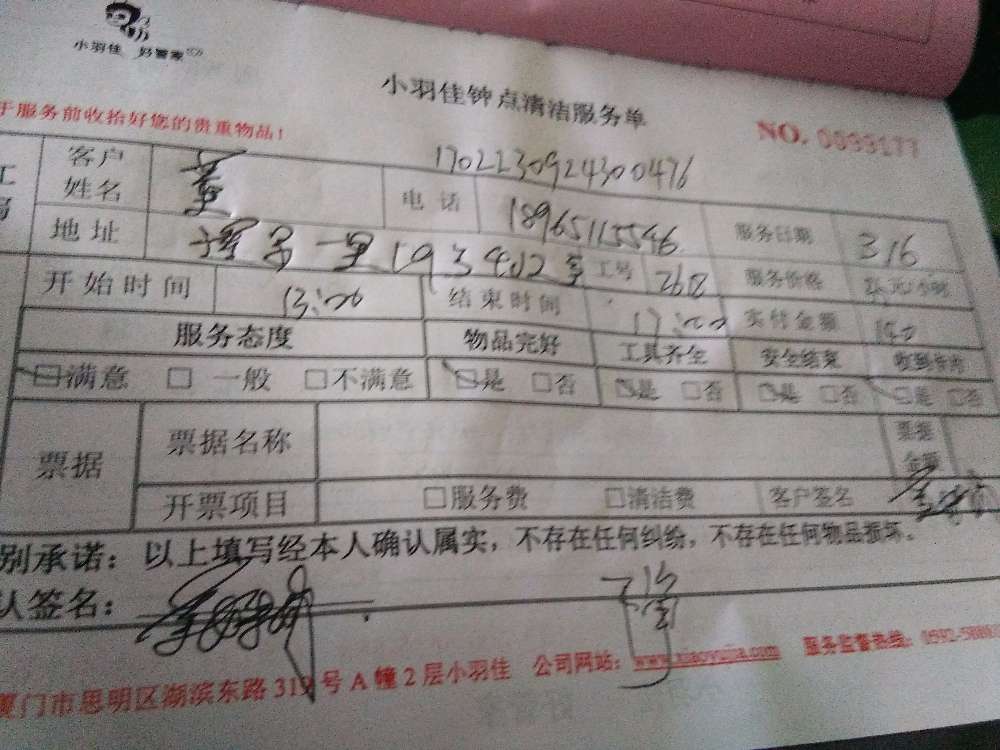 小羽佳 好管家
小羽佳钟点清洁服务单
于服务前收拾好您的贵重物品！
NO. 0899177
1702230924300476
客户姓名 电话 18965115546 服务日期 3.16
地址 一里193 402室 工号 2618 服务价格
开始时间 13:00 结束时间 17:00 实付金额 140
服务态度 物品完好 工具齐全 安全结束
□满意 □一般 □不满意 □是 □否 □是 □否 □是 □否 □是 □否
票据 票据名称 票据金额
开票项目 □服务费 □清洁费 客户签名
别承诺：以上填写经本人确认属实，不存在任何纠纷，不存在任何物品损坏。
认签名：
厦门市思明区湖滨东路319号A幢2层小羽佳 公司网站：www.xiaoyujia.com 服务监督热线：0592-5880